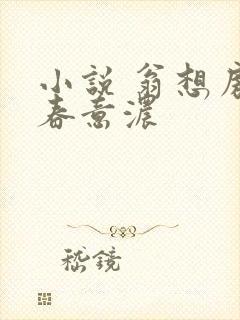 小說 翁想房
春意濃
嵇鏡